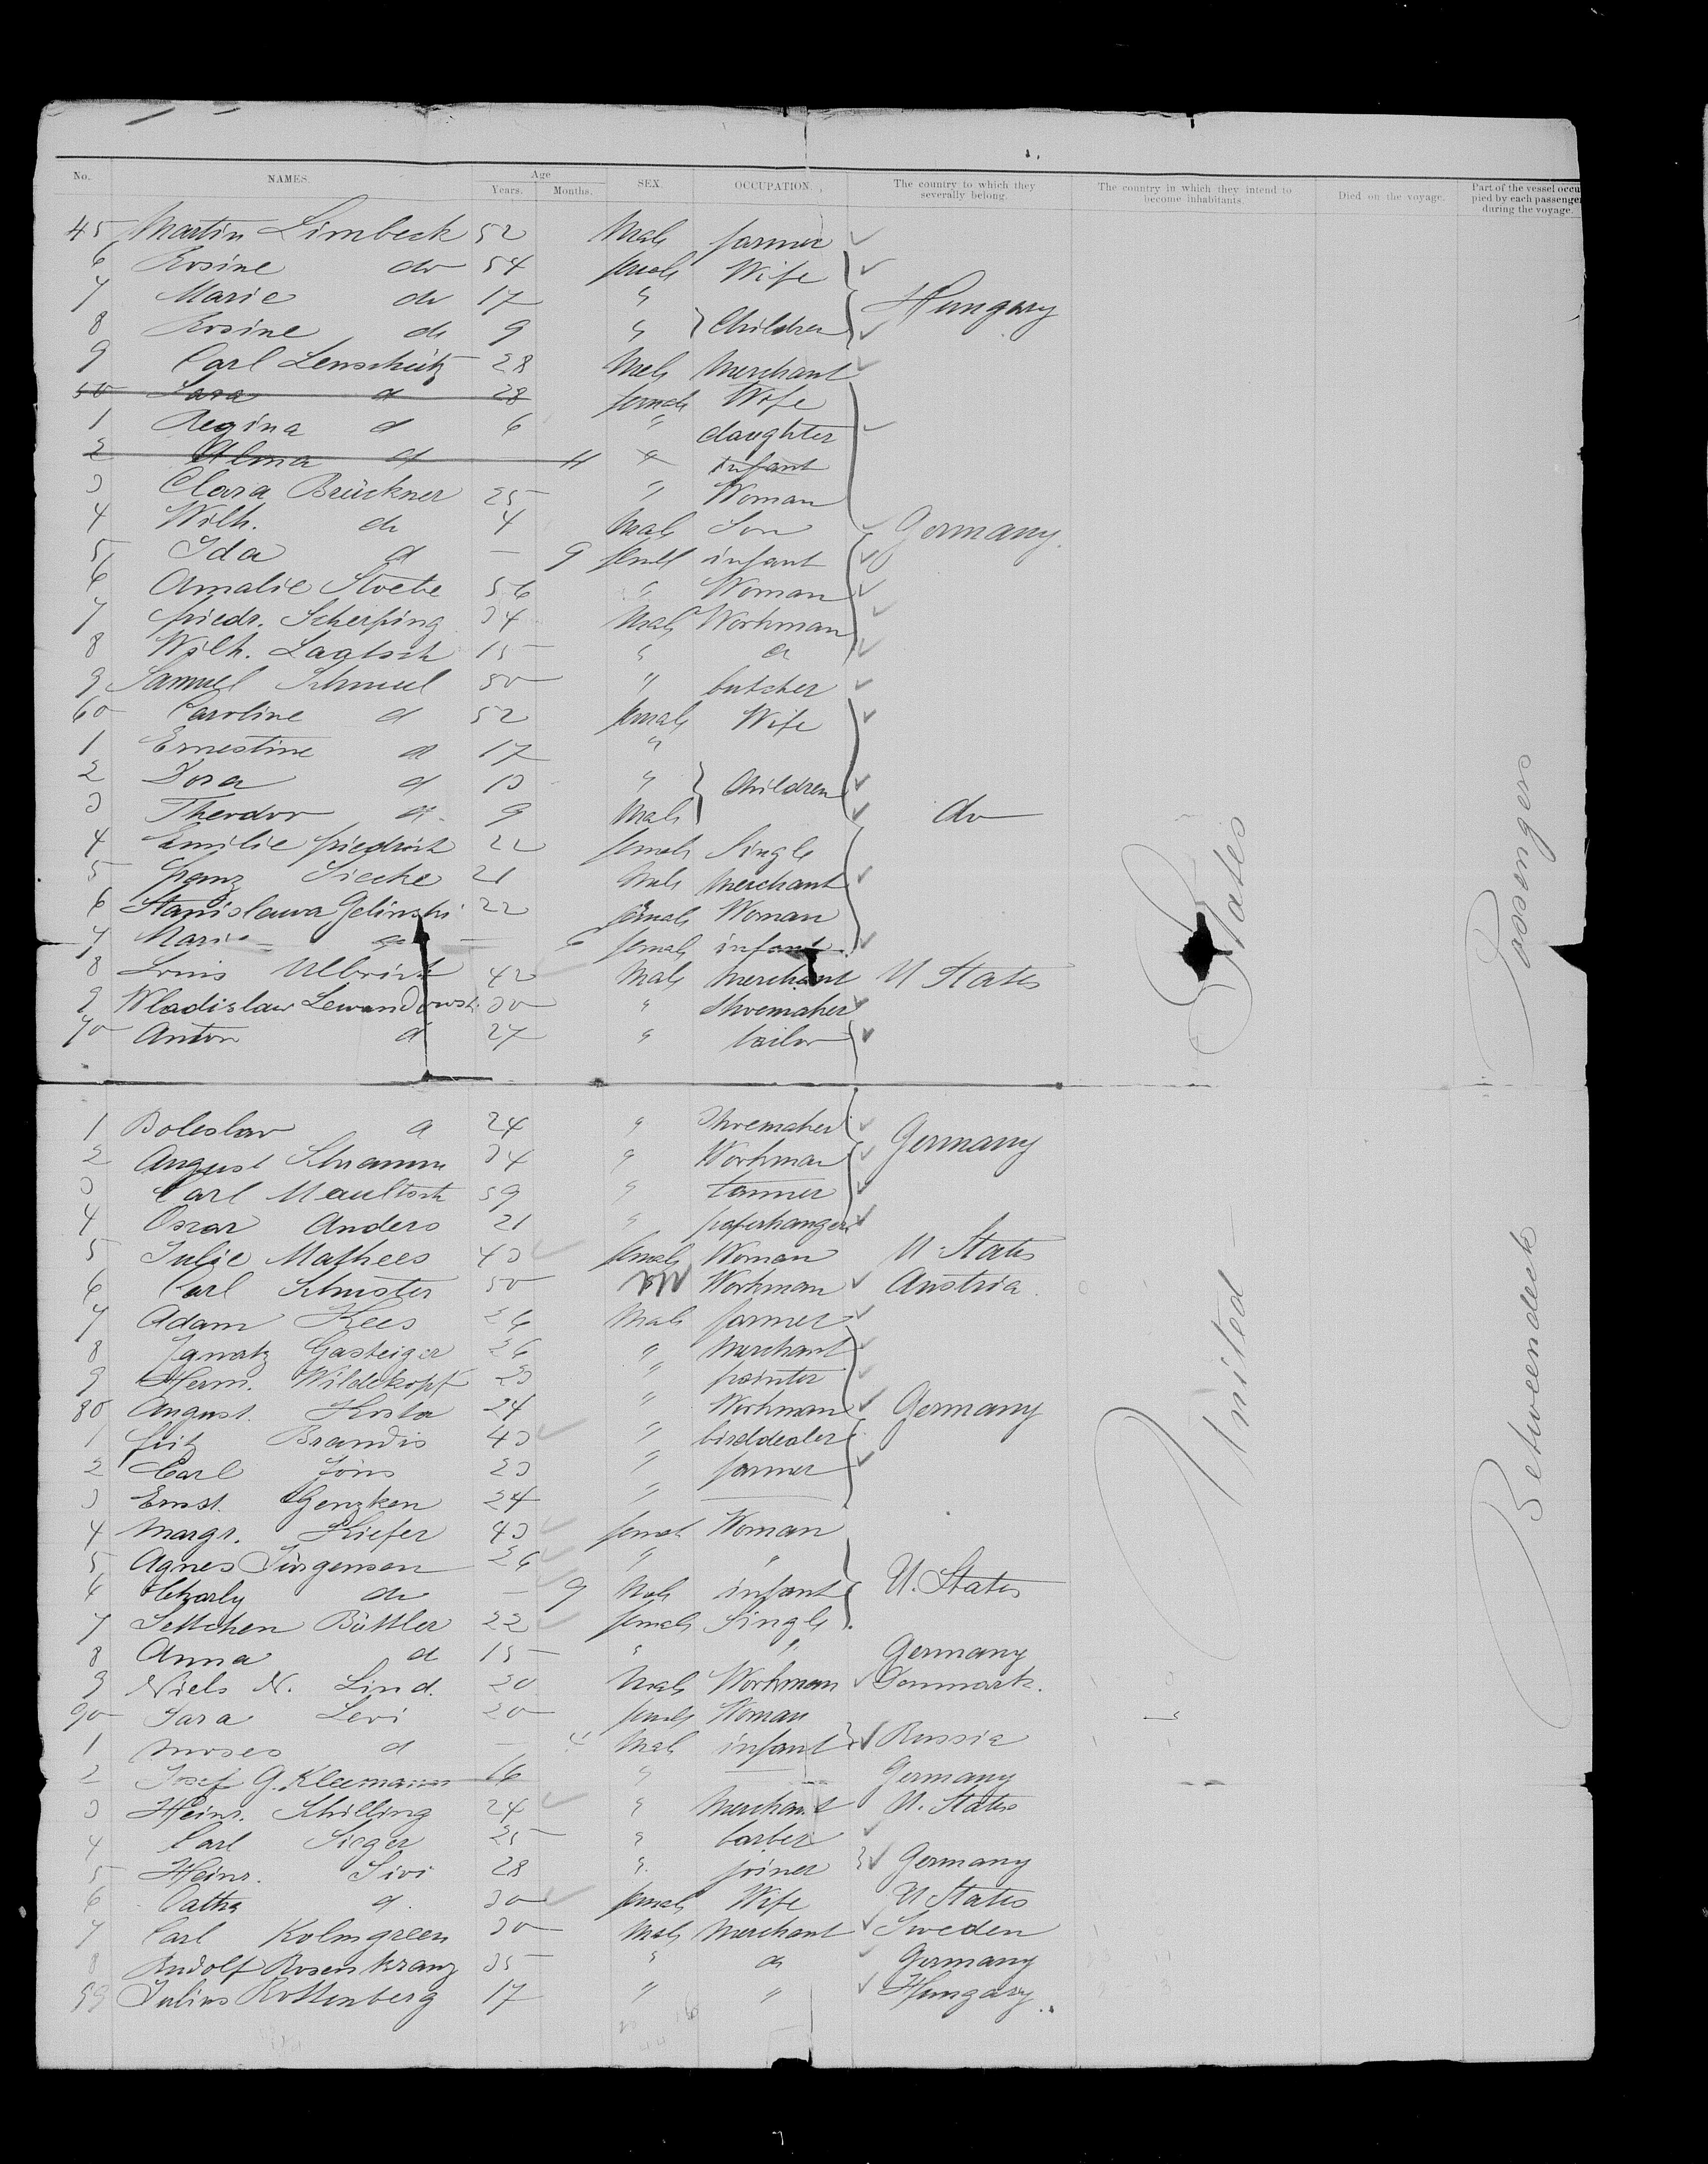 No. NAMES. Age Years. Months. SEX. OCCUPATION. The country to which they severally belong. The country in which they intend to become inhabitants. Died on the voyage. Part of the vessel occupied by each passenger during the voyage.
45 Martin Limbeck 52 Male farmer
6 Rosine do 54 female Wife
7 Marie do 17 " Hungary
8 Rosine do 9 " Children
9 Carl Lenschütz 28 Male Merchant
50 Sara d 28 female Wife
1 Regina d 6 " daughter
2 Alma d 4 " infant
3 Clara Brückner 25 " Woman
4 Wilh. do 4 Male Son Germany.
5 Ida d — 9 female infant
6 Amalie Stoebe 56 " Woman
7 friedr. Scherping 34 Male Workman
8 Wilh. 15 " d
9 Samuel 50 " butcher
60 Caroline d 52 female Wife
1 Ernestine d 17 "
2 Dora d 13 " Children
3 Theodor d. 9 Male do
4 Emilie friedrich 22 female Single
5 franz Siecke 21 Male Merchant
6 Stanislawa Gelinski 22 female Woman
7 Marie — 6 female infant
8 Louis Ulbrich 42 Male Merchant U States
9 Wladislaw Lewandowsk. 30 " Shoemaker
70 Anton d 27 " tailor
1 Boleslav d 24 " Shoemaker
2 August Schramm 34 " Workman Germany
3 Carl 59 " tanner
4 Oscar Anders 21 " paperhanger
5 Julie Mathees 43 female Woman U. States
6 Carl Schuster 50 M Workman Austria.
7 Adam Kees 26 Male farmer
8 Ignatz Gasteiger 26 " Merchant
9 Herm. Wildekopf 23 " painter
80 August. Kosta 24 " Workman Germany
1 fritz Brandis 43 " birddealer
2 Carl Jöns 23 " farmer
3 Ernst. Genzken 24 " —
4 Margr. Kiefer 43 female Woman
5 Agnes Jürgensen 26 " "
6 Charly do — 9 Male infant U. States
7 Settchen Büttler 22 female Single
8 Anna d 15 " " Germany
9 Niels N. Lind. 20 Male Workman Denmark.
90 Sara Levi 20 female Woman
1 Moses d — Male infant Russia
2 Josef G. Kleemann 16 " — Germany
3 Heinr. Schilling 24 " Merchant U. States
4 Carl Sieger 25 " barber
5 Heinr. Sivi 28 " joiner Germany
6 Cathr d. 30 female Wife U States
7 Carl Kolmgreen 30 Male Merchant Sweden
8 Rudolf Rosenkranz 35 " d Germany
99 Julius Rottenberg 17 " " Hungary.
United States
Betweendeck Passengers